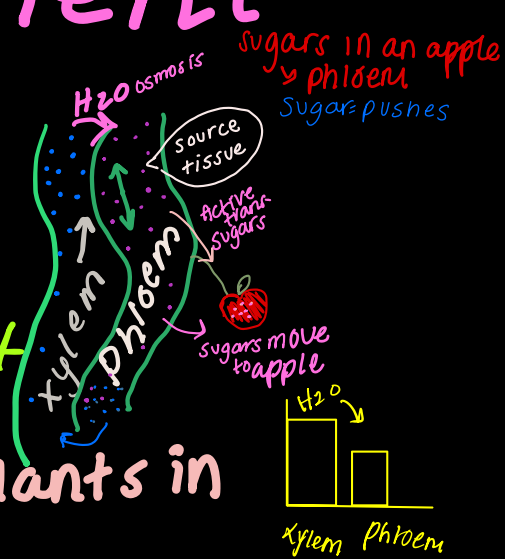 sugars in an apple
phloem
sugar=pushes
H2O osmosis
source
tissue
Active
trans-
sugars
xylem
phloem
sugars move
to apple
H2O
xylem phloem
lants in